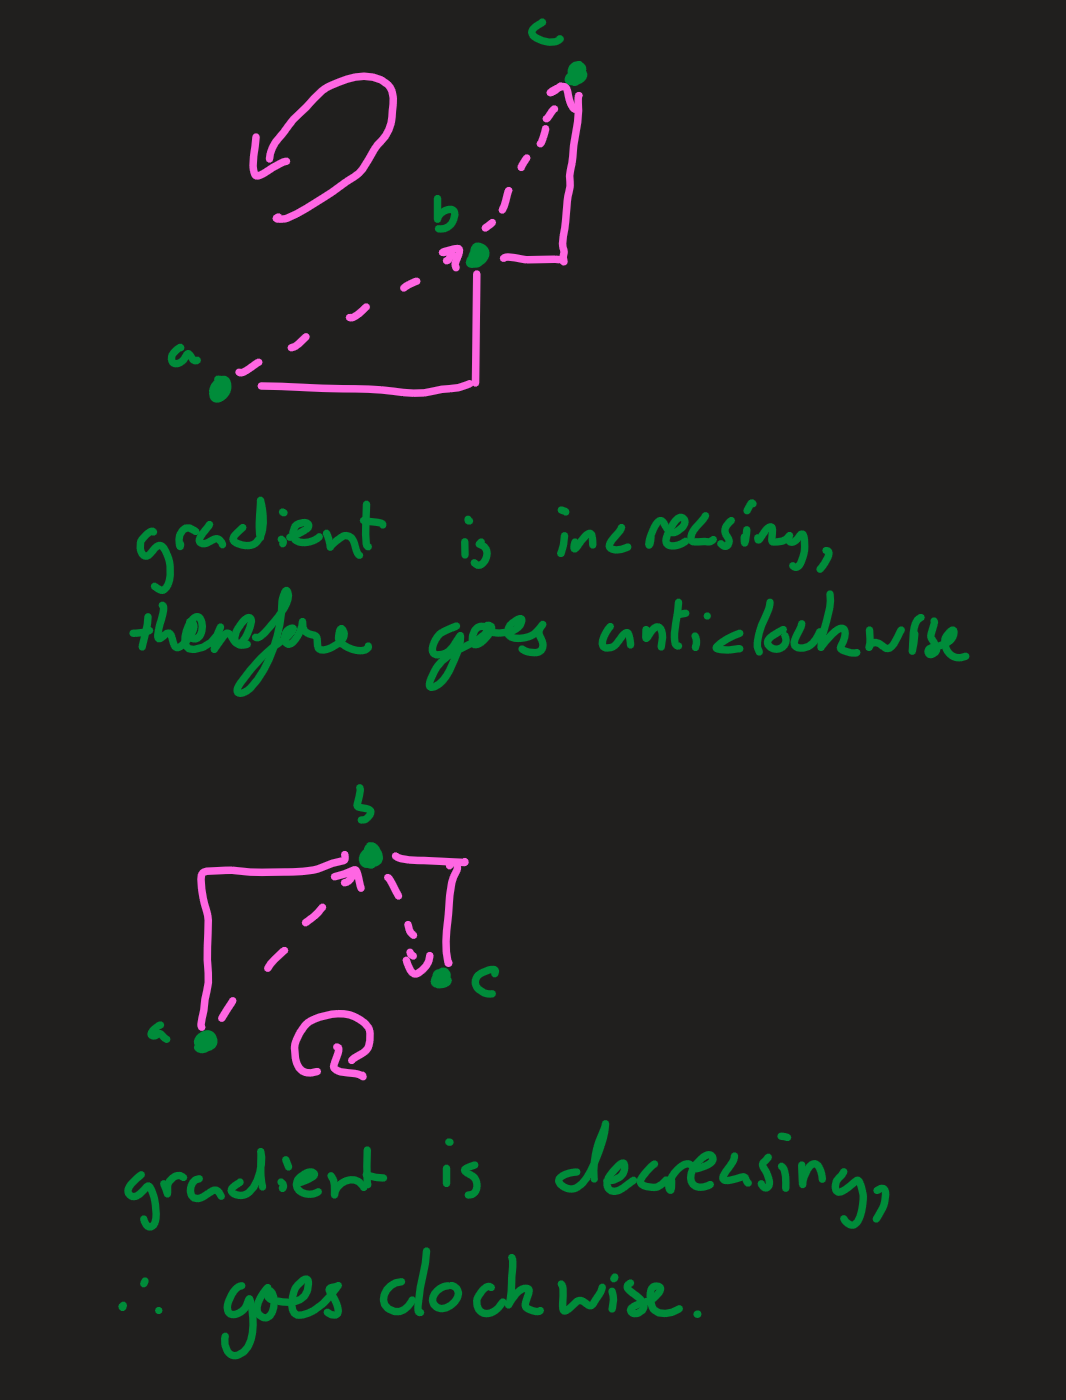 c
b
a
gradient is increasing,
therefore goes anticlockwise
b
c
a
gradient is decreasing,
∴ goes clockwise.